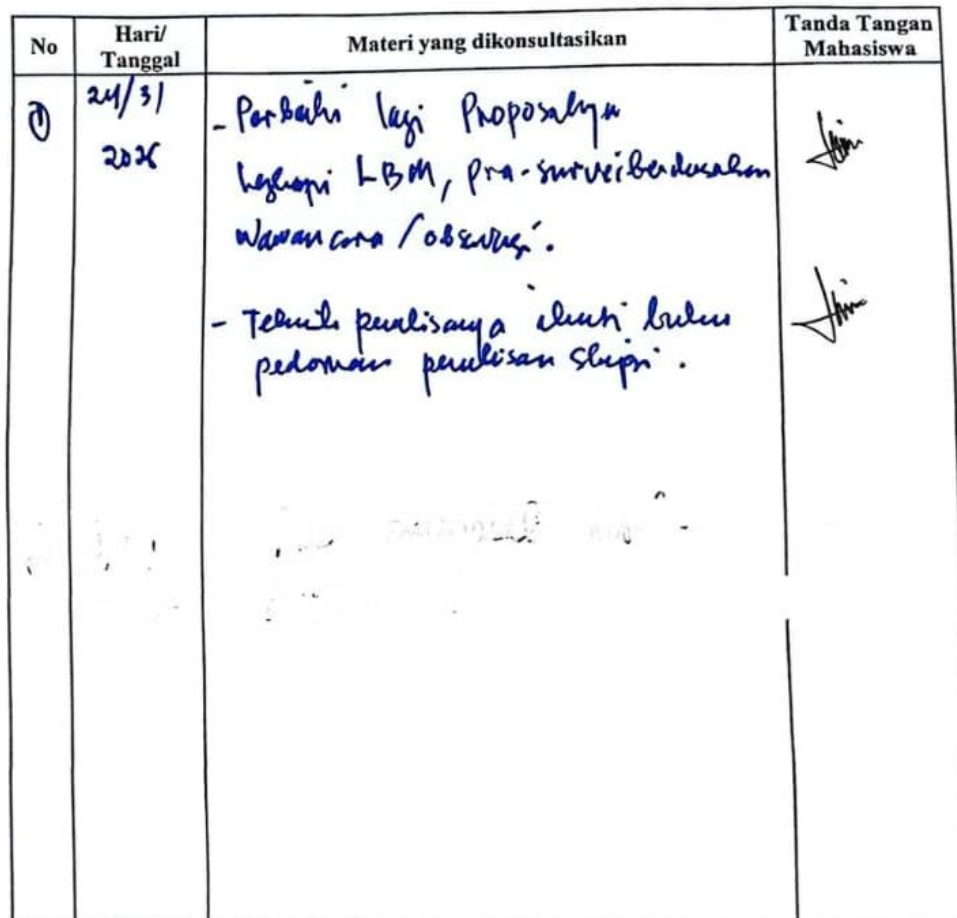 No
Hari/
Tanggal
Materi yang dikonsultasikan
Tanda Tangan
Mahasiswa
①
24/3/
2026
- Perbaiki lagi Proposalnya
lengkapi LBM, pra-survei berdasarkan
wawancara / observasi.
- Teknik penulisanya ikuti buku
pedoman penulisan skripsi.